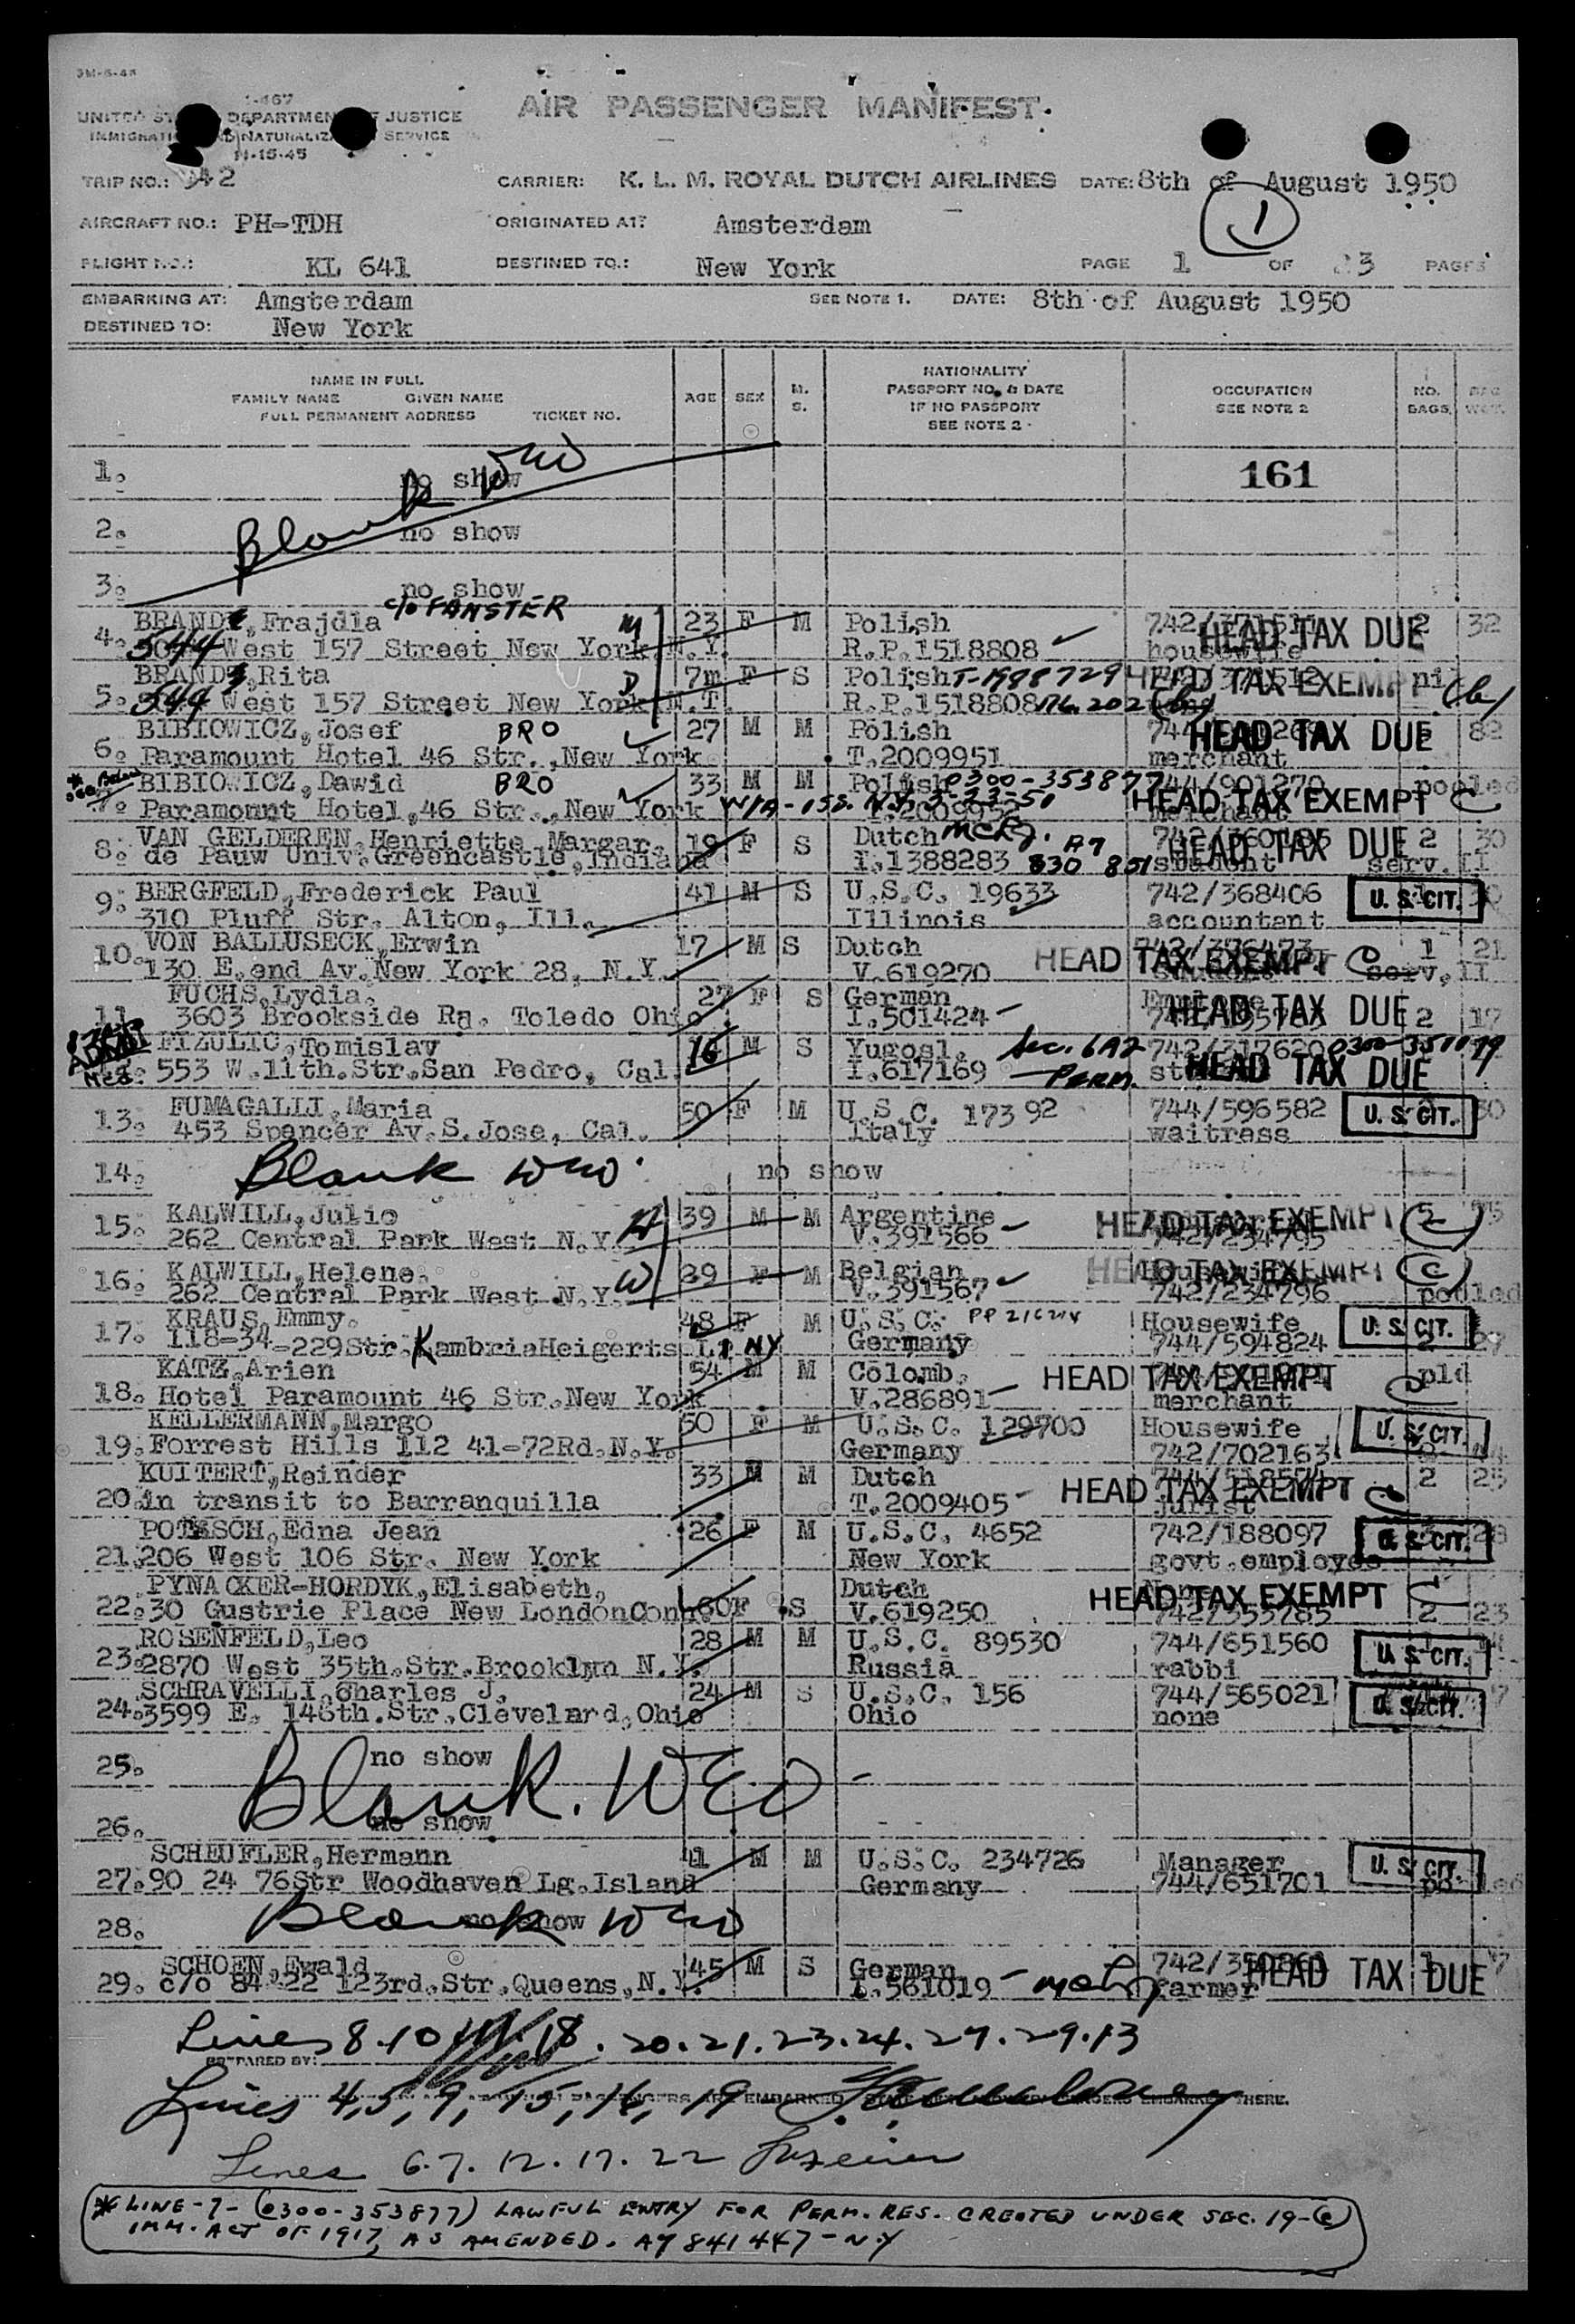 3M-6-48
I-467
UNITED ST DEPARTMEN F JUSTICE
IMMIGRATI NATURALIZA N SERVICE
11-15-45
AIR PASSENGER MANIFEST.
TRIP NO.: 342 CARRIER: K. L. M. ROYAL DUTCH AIRLINES DATE: 8th of August 1950
1
AIRCRAFT NO.: PH-TDH ORIGINATED AT: Amsterdam
FLIGHT NO.: KL 641 DESTINED TO.: New York PAGE 1 OF 3 PAGES
EMBARKING AT: Amsterdam SEE NOTE 1. DATE: 8th of August 1950
DESTINED TO: New York
NAME IN FULL
FAMILY NAME GIVEN NAME
FULL PERMANENT ADDRESS TICKET NO.
AGE SEX M. S.
NATIONALITY
PASSPORT NO. & DATE
IF NO PASSPORT
SEE NOTE 2
OCCUPATION
SEE NOTE 2
NO. BAGS
BAG WGT.
1. no show 161
Blank WEO
2. no show
3. no show
c/o FANSTER
4. BRAND, Frajdla M 23 F M Polish HEAD TAX DUE 2 32
544 West 157 Street New York N.Y. R.P.1518808 housewife
5. BRAND, Rita D 7m F S Polish T-1988729 HEAD TAX EXEMPT nil (b)
544 West 157 Street New York N.T. R.P.1518808
6. BIBIOWICZ, Josef BRO 27 M M Polish HEAD TAX DUE 82
Paramount Hotel 46 Str., New York T.2009951 merchant
* See Below
7. BIBIOWICZ, Dawid BRO 33 M M Polish 0300-353877 744/901270 pooled
Paramount Hotel, 46 Str., New York HEAD TAX EXEMPT C
8. VAN GELDEREN, Henriette Margar. 19 F S Dutch HEAD TAX DUE 2 30
de Pauw Univ. Greencastle, Indiana I.1388283 830 851 student serv.II
9. BERGFELD, Frederick Paul 41 M S U.S.C. 19633 742/368406 U. S. CIT.
310 Pluff Str. Alton, Ill. Illinois accountant
10. VON BALLUSECK, Erwin 17 M S Dutch 742/376473 1 21
130 E. end Av. New York 28, N.Y. V.619270 HEAD TAX EXEMPT C serv,II
11. FUCHS, Lydia. 27 F S German HEAD TAX DUE
3603 Brookside Rd. Toledo Ohio. I.501424 2 17
ADMIT Med.
FIZULIC, Tomislav 16 M S Yugosl. Sec. 6A2 742/317620
553 W. 11th. Str. San Pedro, Cal. I.617169 PERM. HEAD TAX DUE
13. FUMAGALLI, Maria 50 F M U.S.C. 17392 744/596582 U. S. CIT. 30
453 Spencer Av. S. Jose, Cal. Italy waitress
14. Blank WEO. no show
15. KALWILL, Julio H 39 M M Argentine HEAD TAX EXEMPT C
262 Central Park West N.Y. V.391566 742/234795
16. KALWILL, Helene. W 39 F M Belgian HEAD TAX EXEMPT C
262 Central Park West N.Y. V.391567 742/234796 pooled
17. KRAUS, Emmy. 48 F M U.S.C. Housewife U. S. CIT.
118-34-229Str. KambriaHeigerts L I NY Germany 744/594824 2 27
18. KATZ, Arien 54 M M Colomb. HEAD TAX EXEMPT pld
Hotel Paramount 46 Str. New York V.286891 merchant C
19. KELLERMANN, Margo 50 F M U.S.C. 129700 Housewife U. S. CIT.
Forrest Hills 112 41-72Rd. N.Y. Germany 742/702163 44
20. KUITERT, Reinder 33 M M Dutch HEAD TAX EXEMPT C 2 25
in transit to Barranquilla T.2009405 jurist
21. POTASCH, Edna Jean 26 F M U.S.C. 4652 742/188097 U. S. CIT. 28
206 West 106 Str. New York New York govt. employee
22. PYNACKER-HORDYK, Elisabeth, 60 F S Dutch HEAD TAX EXEMPT C
30 Gustrie Place New London Conn. V.619250 742/353785 2 23
23. ROSENFELD, Leo 28 M M U.S.C. 89530 744/651560 U. S. CIT. 14
2870 West 35th. Str. Brooklyn N.Y. Russia rabbi
24. SCHRAVELLI, Charles J. 24 M S U.S.C. 156 744/565021 U. S. CIT.
3599 E. 148th. Str., Clevelnrd, Ohio Ohio none
25. no show
Blank. WEO
26. no show
27. SCHEUFLER, Hermann 41 M M U.S.C. 234726 Manager U. S. CIT.
90 24 76Str Woodhaven Lg. Island Germany 744/651701 pooled
28. Blank no show WEO
29. SCHOEN, Ewald 45 M S German 742/350861 HEAD TAX DUE
c/o 84-22 123rd. Str. Queens, N.Y. I.561019 farmer
Lines 8.10 18. 20. 21. 23. 24. 27. 29. 13
PREPARED BY:
Lines 4, 5, 9, 15, 16, 19
Lines 6. 7. 12. 17. 22
* LINE-7-(0300-353877) LAWFUL ENTRY FOR PERM. RES. CREATED UNDER SEC. 19-(C)
IMM. ACT OF 1917, AS AMENDED. A7841447-N.Y